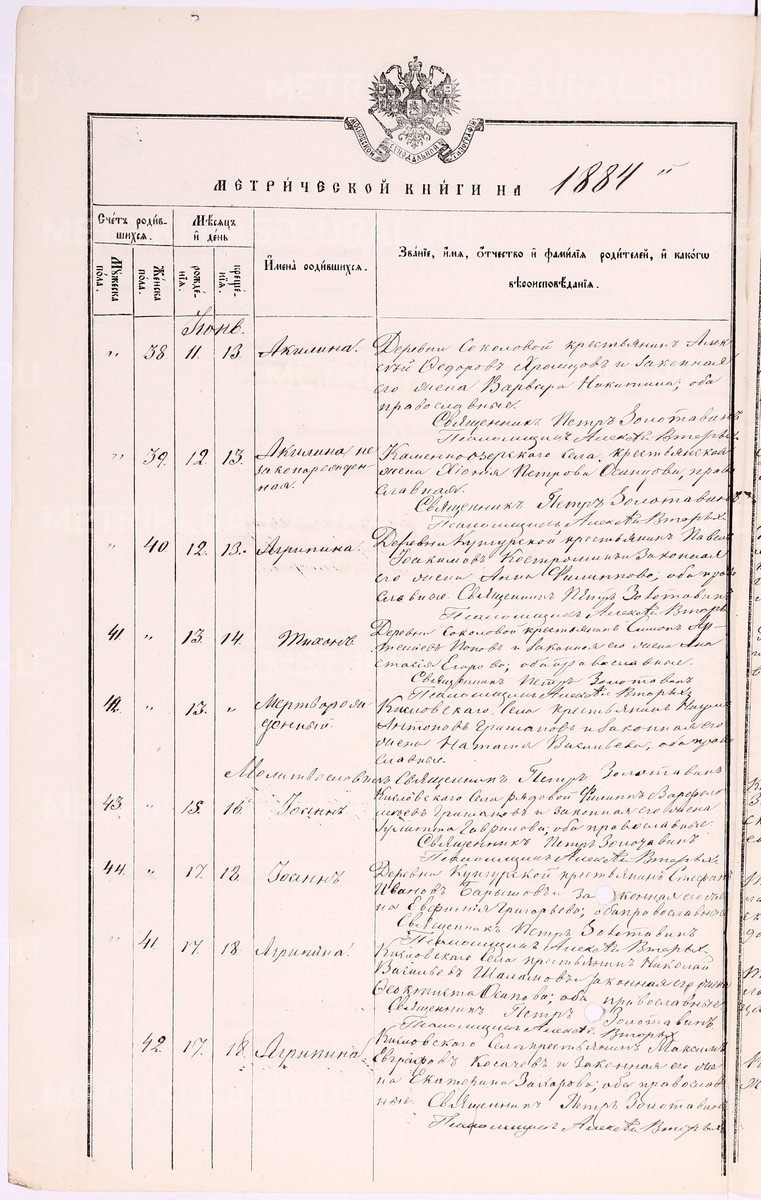 МЕТРИЧЕСКОЙ КНИГИ НА 1884 й
Счетъ родившихся.
Мѣсяцъ и день
Имена родившихся.
Званіе, имя, отчество и фамилія родителей, и какого вѣроисповѣданія.
Мужеска пола.
Женска пола.
рожденія.
крещенія.
Іюнь.
" 38 11. 13. Акилина.
Деревни Соколовой крестьянинъ Алек-
сѣй Ѳедоровъ Хромцовъ и законная
его жена Варвара Никитина; оба
православные.
Священникъ Петръ Золотавинъ
Псаломщикъ Алексѣй Вторыхъ
" 39. 12. 13. Акилина не
законорожден-
ная.
Каменноозерского села, крестьянская
жена Хіонія Петрова Осинцова, право
славная.
Священникъ Петръ Золотавинъ
Псаломщикъ Алексѣй Вторыхъ
" 40 12. 13. Агрипина.
Деревни Кунгурской крестьянинъ Павелъ
Іоакимовъ Костроминъ и законная
его жена Анна Филиппова; оба право
славные. Священникъ Петръ Золотавинъ
Псаломщикъ Алексѣй Вторыхъ
41 " 13. 14. Тихонъ
Деревни Соколовой крестьянинъ Симонъ Ар-
темьевъ Поповъ и законная его жена Ана
стасія Егорова; оба православные.
Священникъ Петръ Золотавинъ
Псаломщикъ Алексѣй Вторыхъ
42. " 13. " Мертворож
денный.
Кисловскаго Села крестьянинъ Наумъ
Антоновъ Гришановъ и законная его
жена Наталія Васильева, оба право
славные.
Молитвословилъ Священникъ Петръ Золотавинъ
43 " 15. 16. Іоаннъ
Кисловскаго Села рядовой Филиппъ Варфоло
моевъ Гришановъ и законная его жена
Гулитта Гаврилова; оба православные.
Священникъ Петръ Золотавинъ
Псаломщикъ Алексѣй Вторыхъ
44. " 17. 18. Іоаннъ
Деревни Кунгурской крестьянинъ Стефанъ
Ивановъ Барышовъ и законная его же
на Евфимія Григорьева; оба православные
Священникъ Петръ Золотавинъ
Псаломщикъ Алексѣй Вторыхъ
" 41 17. 18. Агрипина.
Кисловскаго Села крестьянинъ Николай
Васильевъ Шаламовъ и законная его жена
Ѳеоктиста Осипова; оба православные
Священникъ Петръ Золотавинъ
Псаломщикъ Алексѣй Вторыхъ
42. 17. 18. Агрипина
Кисловского Села крестьянинъ Максимъ
Евграфовъ Косачевъ и законная его же
на Екатерина Захарова; оба православ
ные. Священникъ Петръ Золотавинъ
Псаломщикъ Алексѣй Вторыхъ